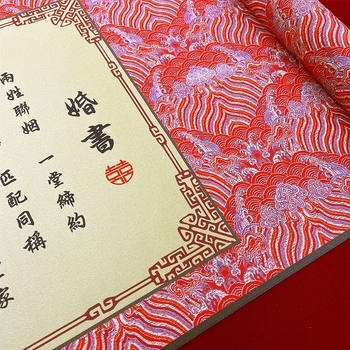 婚書
囍
兩姓聯姻 一堂締約
匹配同稱
家